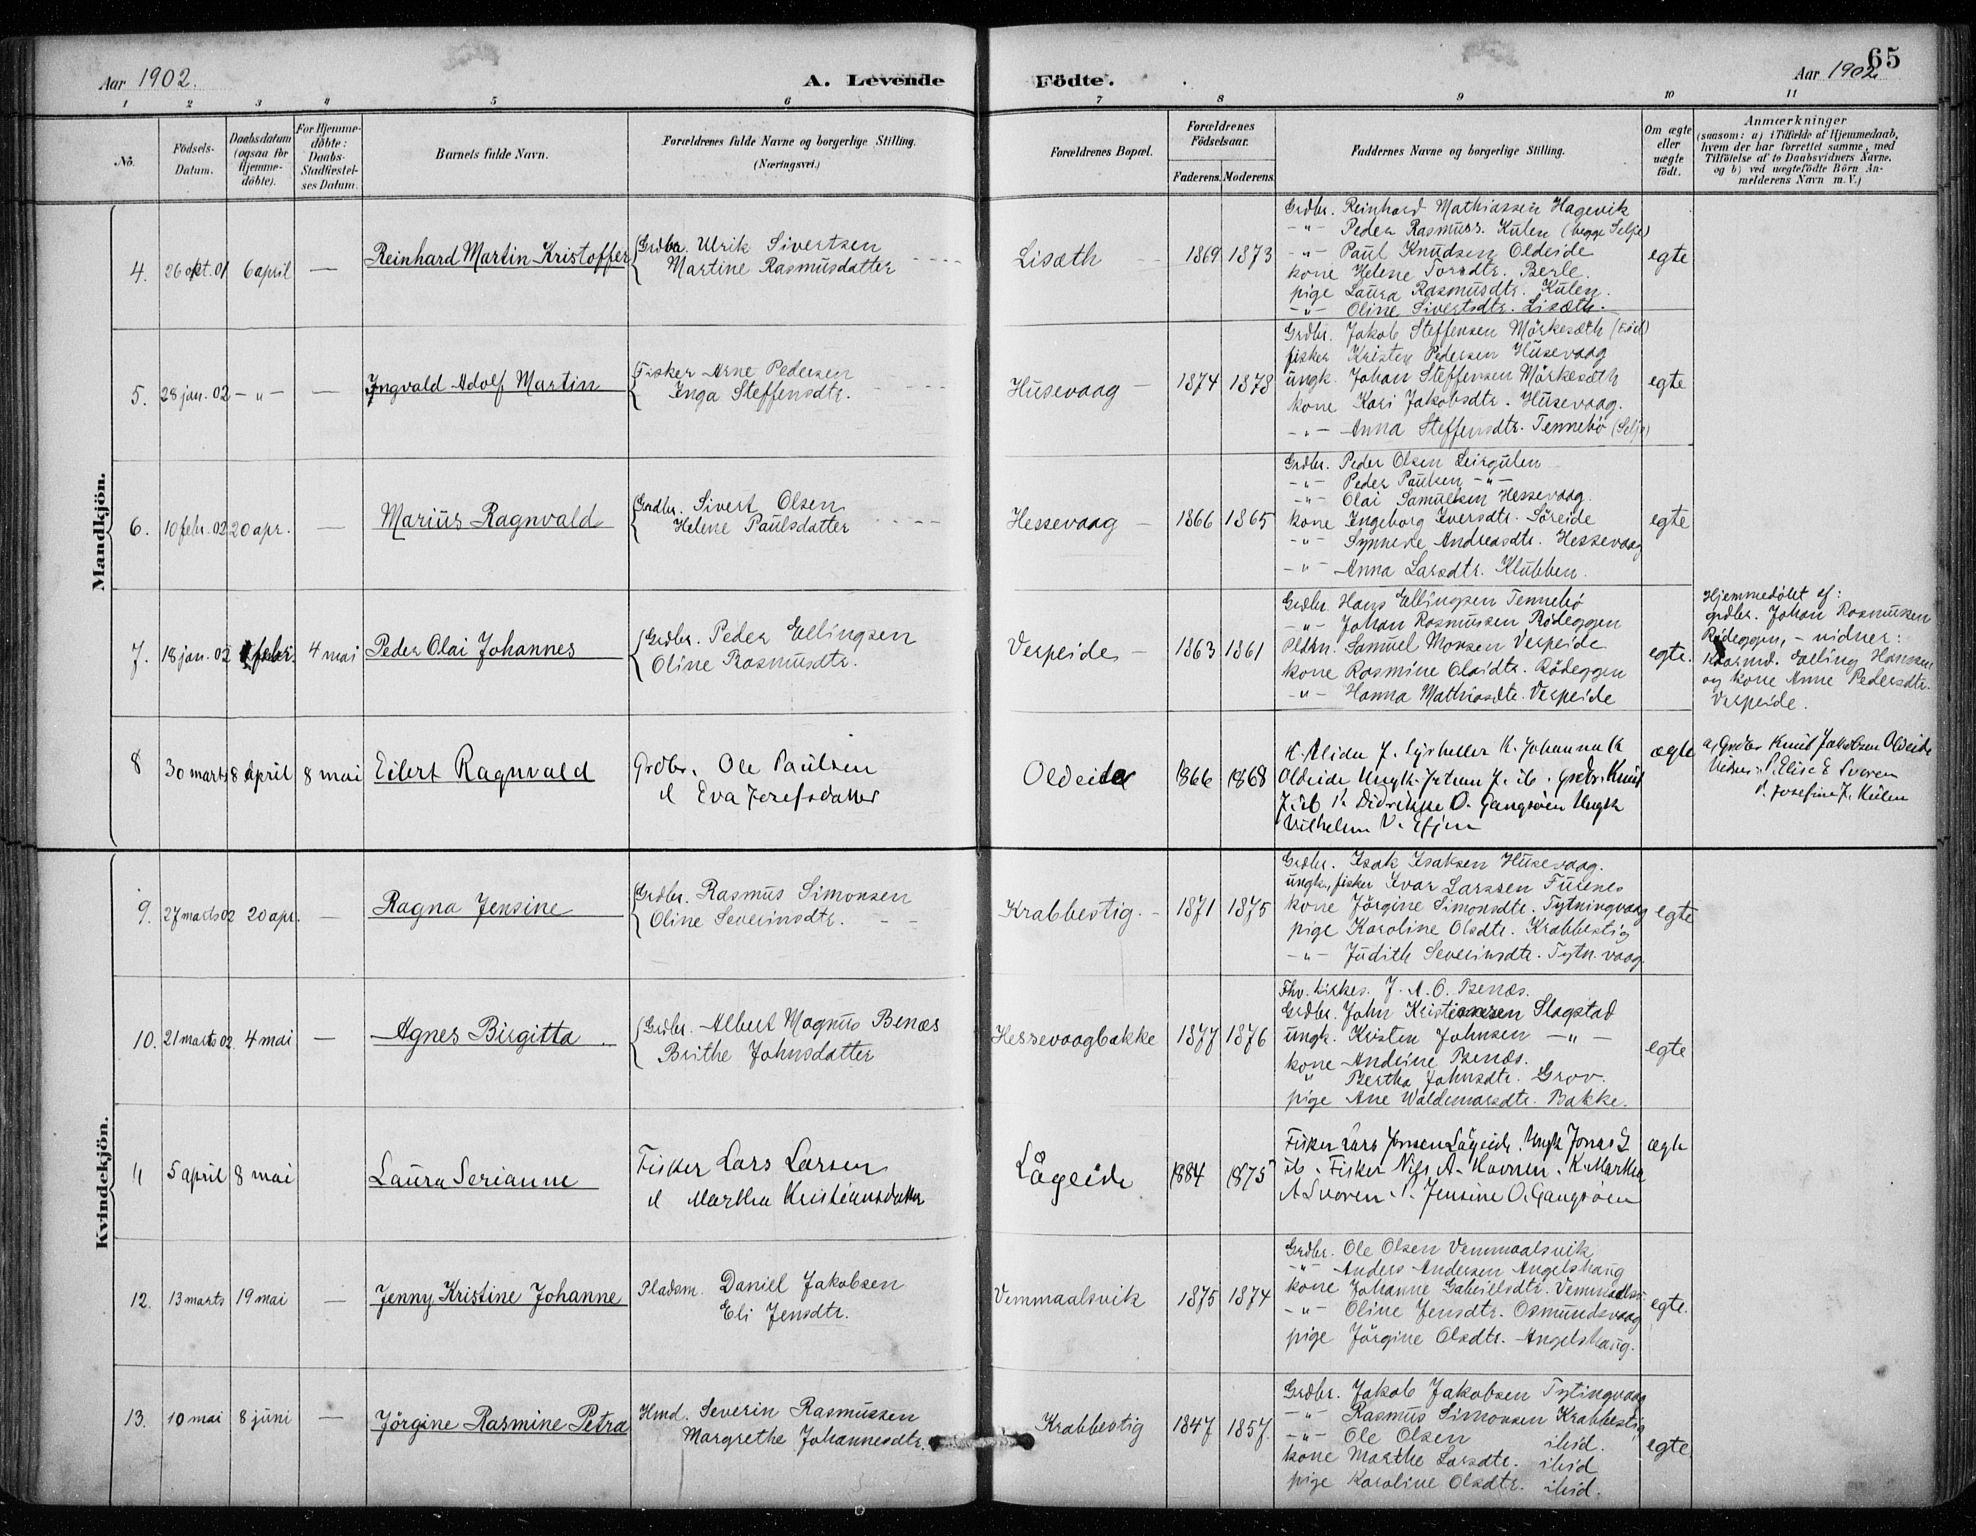 65
Aar 1902.
A. Levende
Födte.
Aar 1902
1 2 3 4 5 6 7 8 9 10 11
No.
Födsels-Datum.
Daabsdatum (ogsaa for Hjemme-döbte).
For Hjemme-döbte: Daabs-Stadfæstel-ses Datum.
Barnets fulde Navn.
Forældrenes fulde Navne og borgerlige Stilling. (Næringsvei.)
Forældrenes Bopæl.
Forældrenes Födselsaar.
Faderens. Moderens.
Faddernes Navne og borgerlige Stilling.
Om ægte eller uægte födt.
Anmærkninger
(saasom: a) i Tilfælde af Hjemmedaab,
hvem der har forrettet samme, med
Tilföielse af to Daabsvidners Navne.
og b) ved uægtefödte Börn An-
melderens Navn m. V.)
Mandkjön.
4. 26 okt. 01 6 april — Reinhard Martin Kristoffer
Grdbr. Ulrik Sivertsen
Martine Rasmusdatter
Lisæth 1869 1873
Grdbr. Reinhard Mathiassen Hagevik
-"- Peder Rasmuss. Kulen (begge Selje)
-"- Paul Knudsen Oldeide
kone Helene Torsdtr. Berle.
pige Laura Rasmusdtr. Kulen.
-"- Oline Sivertsdtr. Lisæth.
egte
5. 28 jan. 02 -"- — Ingvald Adolf Martin
Fisker Arne Pedersen
Inga Steffensdtr.
Husevaag 1874 1878
Grdbr. Jakob Steffensen Mörkesæth
fisker Kristen Pedersen Husevaag
ungk. Johan Steffensen Mörkesæth
kone Kari Jakobsdtr. Husevaag.
-"- Anna Steffensdtr. Tennebö (Selje)
egte
6. 10 febr. 02 20 apr. — Marius Ragnvald
Grdbr. Sivert Olsen
Helene Paulsdatter
Hessevaag 1866 1865
Grdbr. Peder Olsen Leirgulen
-"- Peder Paulsen -"-
-"- Olai Samuelsen Hessevaag.
kone Ingeborg Iversdtr. Söreide
-"- Synneve Andreasdtr. Hessevaag
-"- Anna Larsdtr. Klubben.
egte
7. 18 jan. 02 febr. 4 mai Peder Olai Johannes
Grdbr. Peder Ellingsen
Oline Rasmusdtr.
Vespeide 1863 1861
Grdbr. Hans Ellingsen Tennebö
-"- Johan Rasmussen Rödeggen
Samuel Monsen Vespeide
kone Rasmine Olaidtr. Rödeggen
-"- Hanna Mathiasdtr. Vespeide
egte.
Hjemmedöbt af:
grdbr. Johan Rasmussen
Rödeggen, - vidner:
Elling Hansen
og kone Anne Pedersdtr.
Vespeide.
8 30 marts 8 april 8 mai Eilert Ragnvald
Grdbr. Ole Paulsen
Eva Josefsdatter
Oldeide 1866 1868
K. Alida J. K. Johanna K
Oldeide Ungk. J. ib. Grdbr. Knut
J. ib K. Didrikke O. Gangsöen Ungk
Vilhelm V.
ægte
a, Grdbr Knut Jakobsen Oldeide
Vidner: P. Elise E Svoren
P. Josefine J. Kulen
Kvindekjön.
9. 27 marts 02 20 apr. — Ragna Jensine
Grdbr. Rasmus Simonsen
Oline Severinsdtr.
Krabbestig. 1871 1875
Grdbr. Isak Isaksen Husevaag.
ungk, fisker Ivar Larssen Furenes
kone Jörgine Simonsdtr. Tytningvaag
pige Karoline Olsdtr. Krabbestig
-"- Judith Severinsdtr. Tytn. vaag.
egte
10. 21 marts 02. 4 mai — Agnes Birgitta
Grdbr. Albert Magnus Benæs
Brithe Johnsdatter
Hessevaagbakke 1877 1876
J. A. O. Benæs.
Grdbr. John Kristiansen Slagstad
ungk. Kristen Johnsen -"-
kone Andrine Benæs.
" Bertha Johnsdtr. Grov.
pige Ane Waldemarsdtr. Bakke.
egte
11 5 april 8 mai Laura Serianne
Fisker Lars Larsen
Martha Kristiansdatter
Lågeide 1884 1875
Fisker Lars Jensen Lågeide. Ungk Jonas G
ib. Fisker Nils A. Havnen. K. Martha
A Svoren. P. Jensine O. Gangsöen
ægte
12. 13 marts 19 mai — Jenny Kristine Johanne
Pladsm. Daniel Jakobsen
Eli Jensdtr.
Vemmaalsvik 1875 1874
Grdbr. Ole Olsen Vemmaalsvik
-"- Anders Andersen Angelshaug
kone Johanne Gabrielsdtr.
-"- Oline Jensdtr. Osmundsvaag
pige Jörgine Olsdtr. Angelshaug.
egte.
13. 10 mai 8 juni — Jörgine Rasmine Petra
Hmd. Severin Rasmussen
Margrethe Johannesdtr.
Krabbestig 1847 1857.
Grdbr. Jakob Jakobsen Tytingvaag
-"- Rasmus Simonsen Krabbestig
-"- Ole Olsen ibid.
kone Marthe Larsdtr. ibid
pige Karoline Olsdtr. ibid.
egte